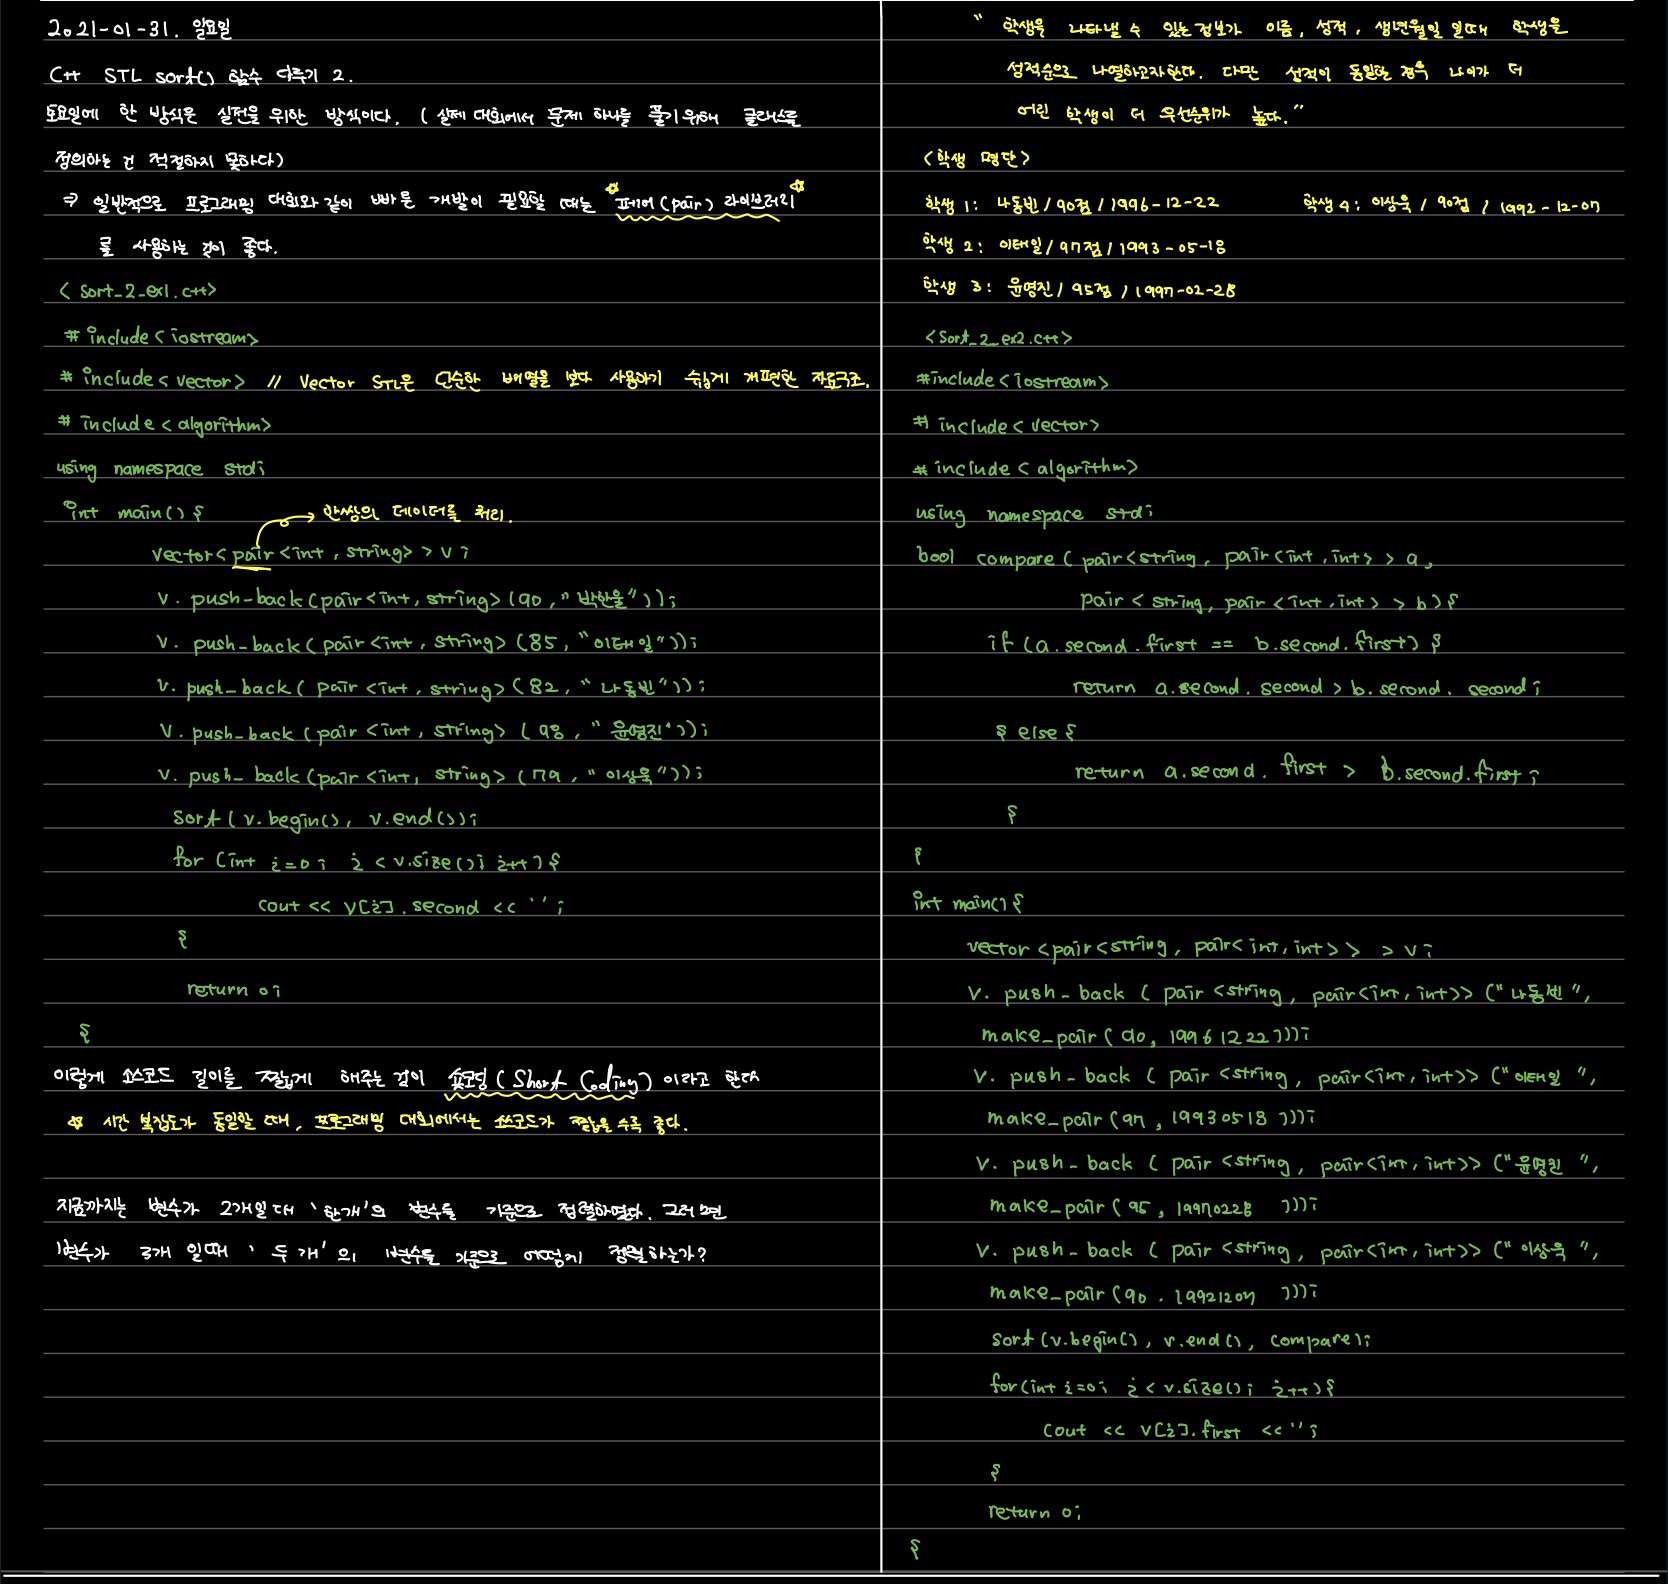 2021-01-31. 일요일
C++ STL sort() 함수 다루기 2.
토요일에 한 방식은 실전을 위한 방식이다. ( 실제 대회에서 문제 하나를 풀기위해 클래스를
정의하는 건 적절하지 못하다)
⇒ 일반적으로 프로그래밍 대회와 같이 빠른 개발이 필요할 때는 "페어(pair) 라이브러리"
를 사용하는 것이 좋다.
< sort_2_ex1.c++>
# include < iostream>
# include < vector> // Vector STL은 단순한 배열을 보다 사용하기 쉽게 개편한 자료구조.
# include < algorithm>
using namespace std;
int main() {
→ 한쌍의 데이터를 처리.
vector< pair <int, string> > v ;
v. push-back(pair<int, string> (90, "박한울"));
v. push_back( pair <int, string> (85, "이태일"));
v. push_back( pair <int, string> (82, "나동빈"));
v. push_back (pair <int, string> (98, "윤영진"));
v. push_back(pair <int, string> (79, "이상욱"));
sort( v.begin(), v.end());
for (int i=0; i < v.size(); i++) {
cout << v[i].second << ' ' ;
}
return 0;
}
이렇게 소스코드 길이를 짧게 해주는 것이 숏코딩(Short Coding) 이라고 한다
☆ 시간 복잡도가 동일할 때, 프로그래밍 대회에서는 소스코드가 짧을 수록 좋다.
지금까지는 변수가 2개일 때 '한개'의 변수를 기준으로 정렬하였다. 그러면
변수가 3개 일때 '두 개'의 변수를 기준으로 어떻게 정렬하는가?
" 학생을 나타낼 수 있는 정보가 이름, 성적, 생년월일 일때 학생을
성적순으로 나열하고자한다. 다만 성적이 동일한 경우 나이가 더
어린 학생이 더 우선순위가 높다."
<학생 명단>
학생 1: 나동빈 / 90점 / 1996-12-22 학생 4: 이상욱 / 90점 / 1992-12-07
학생 2: 이태일 / 97점 / 1993-05-18
학생 3: 윤영진 / 95점 / 1997-02-28
<Sort_2_ex2.c++>
#include <iostream>
# include < vector>
# include < algorithm>
using namespace std;
bool compare ( pair<string, pair<int, int> > a,
pair < string, pair <int, int> > b) {
if (a.second.first == b.second.first) {
return a.second.second > b.second.second;
} else {
return a.second.first > b.second.first;
}
}
int main() {
vector <pair<string, pair<int, int>> > v ;
v. push_back ( pair <string, pair<int, int>> ("나동빈",
make_pair(90, 19961222)));
v. push_back ( pair <string, pair<int, int>> ("이태일",
make_pair(97, 19930518)));
v. push_back ( pair <string, pair<int, int>> ("윤영진",
make_pair(95, 19970228)));
v. push_back ( pair <string, pair<int, int>> ("이상욱",
make_pair(90. 19921207)));
sort (v.begin(), v.end(), compare);
for(int i=0; i < v.size(); i++) {
cout << v[i].first << ' ' ;
}
return 0;
}